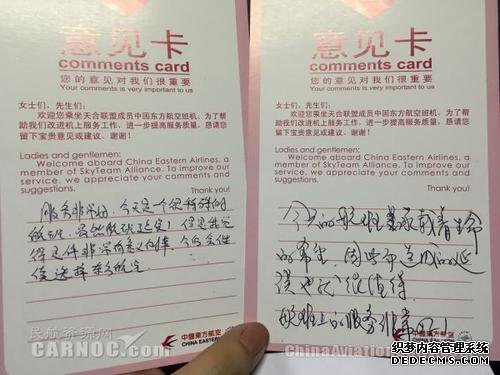 意见卡
comments card
您的意见对我们很重要
Your comments is very important to us
女士们、先生们:
欢迎您乘坐天合联盟成员中国东方航空班机,为了
帮助我们改进机上服务工作,进一步提高服务质量,恳请您
留下宝贵意见或建议,谢谢!
Ladies and gentlemen:
Welcome aboard China Eastern Airlines, a
member of SkyTeam Alliance. To improve our
service, we appreciate your comments and
suggestions.
Thank you!
服务非常好,今天是个很特殊的
航班,虽然航班延误!但是我觉
得是件非常有意义的事,今后会继
续选择东航
中國東方航空
CHINA EASTERN
意见卡
comments card
您的意见对我们很重要
Your comments is very important to us
女士们、先生们:
欢迎您乘坐天合联盟成员中国东方航空班机,为了
帮助我们改进机上服务工作,进一步提高服务质量,恳请您
留下宝贵意见或建议,谢谢!
Ladies and gentlemen:
Welcome aboard China Eastern Airlines, a
member of SkyTeam Alliance. To improve our
service, we appreciate your comments and
suggestions.
Thank you!
今天的航班是承载着生命
的希望,因此即
的延
误也
很值得
航班上的服务非常好!
中國東方航空
民航资源网
CARNOC.com
ChinaAviation
织梦内容管理系统
DEDECMS.COM